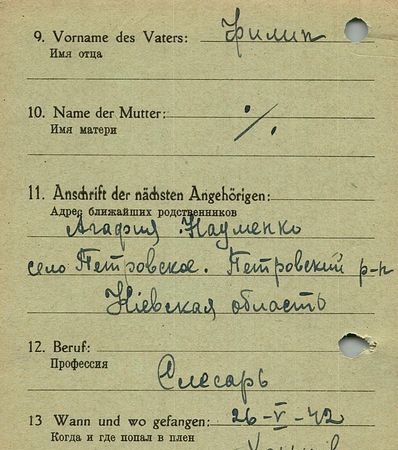 9. Vorname des Vaters: Филип
Имя отца
10. Name der Mutter: ·/.
Имя матери
11. Anschrift der nächsten Angehörigen:
Адрес ближайших родственников
Агафия Науменко
село Петровское. Петровский р-н
Кіевская область
12. Beruf:
Профессия
Слесарь
13 Wann und wo gefangen: 26-V-42
Когда и где попал в плен